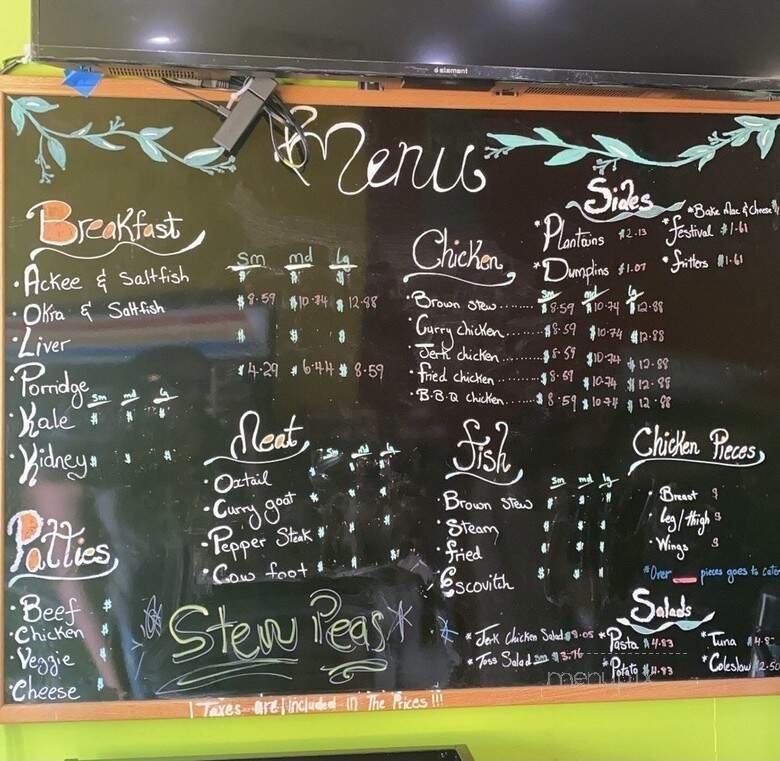 element
Menu
Breakfast
sm md lg
• Ackee & Saltfish $ $ $
• Okra & Saltfish $8.59 $10.74 $12.88
• Liver $ $ $
• Porridge $4.29 $6.44 $8.59
sm md lg
• Kale $ $ $
• Kidney $ $ $
Patties
• Beef $
• Chicken $
• Veggie $
• Cheese $
Meat
sm md lg
• Oxtail
• Curry goat
• Pepper Steak
• Cow foot
Stew Peas
Chicken
sm md lg
• Brown stew........ $8.59 $10.74 $12.88
• Curry chicken........ $8.59 $10.74 $12.88
• Jerk chicken........ $8.59 $10.74 $12.88
• fried chicken........ $8.59 $10.74 $12.88
• B.B.Q chicken........ $8.59 $10.74 $12.88
Fish
sm md lg
Brown Stew $ $ $
• Steam $ $ $
• fried $ $ $
• Escovitch $ $ $
Sides
* Bake Mac & Cheese
* Plantains $2.13
* festival $1.61
* Dumplins $1.07
* fritters $1.61
Chicken Pieces
• Breast $
• Leg/thigh $
• Wings $
*Over pieces goes to
Salads
* Jerk Chicken Salad $8.05
* Pasta $4.83
* Tuna
* Toss Salad sm $3.76
* Potato $4.83
* Coleslaw 2.50
Taxes are Included in The Prices!!!